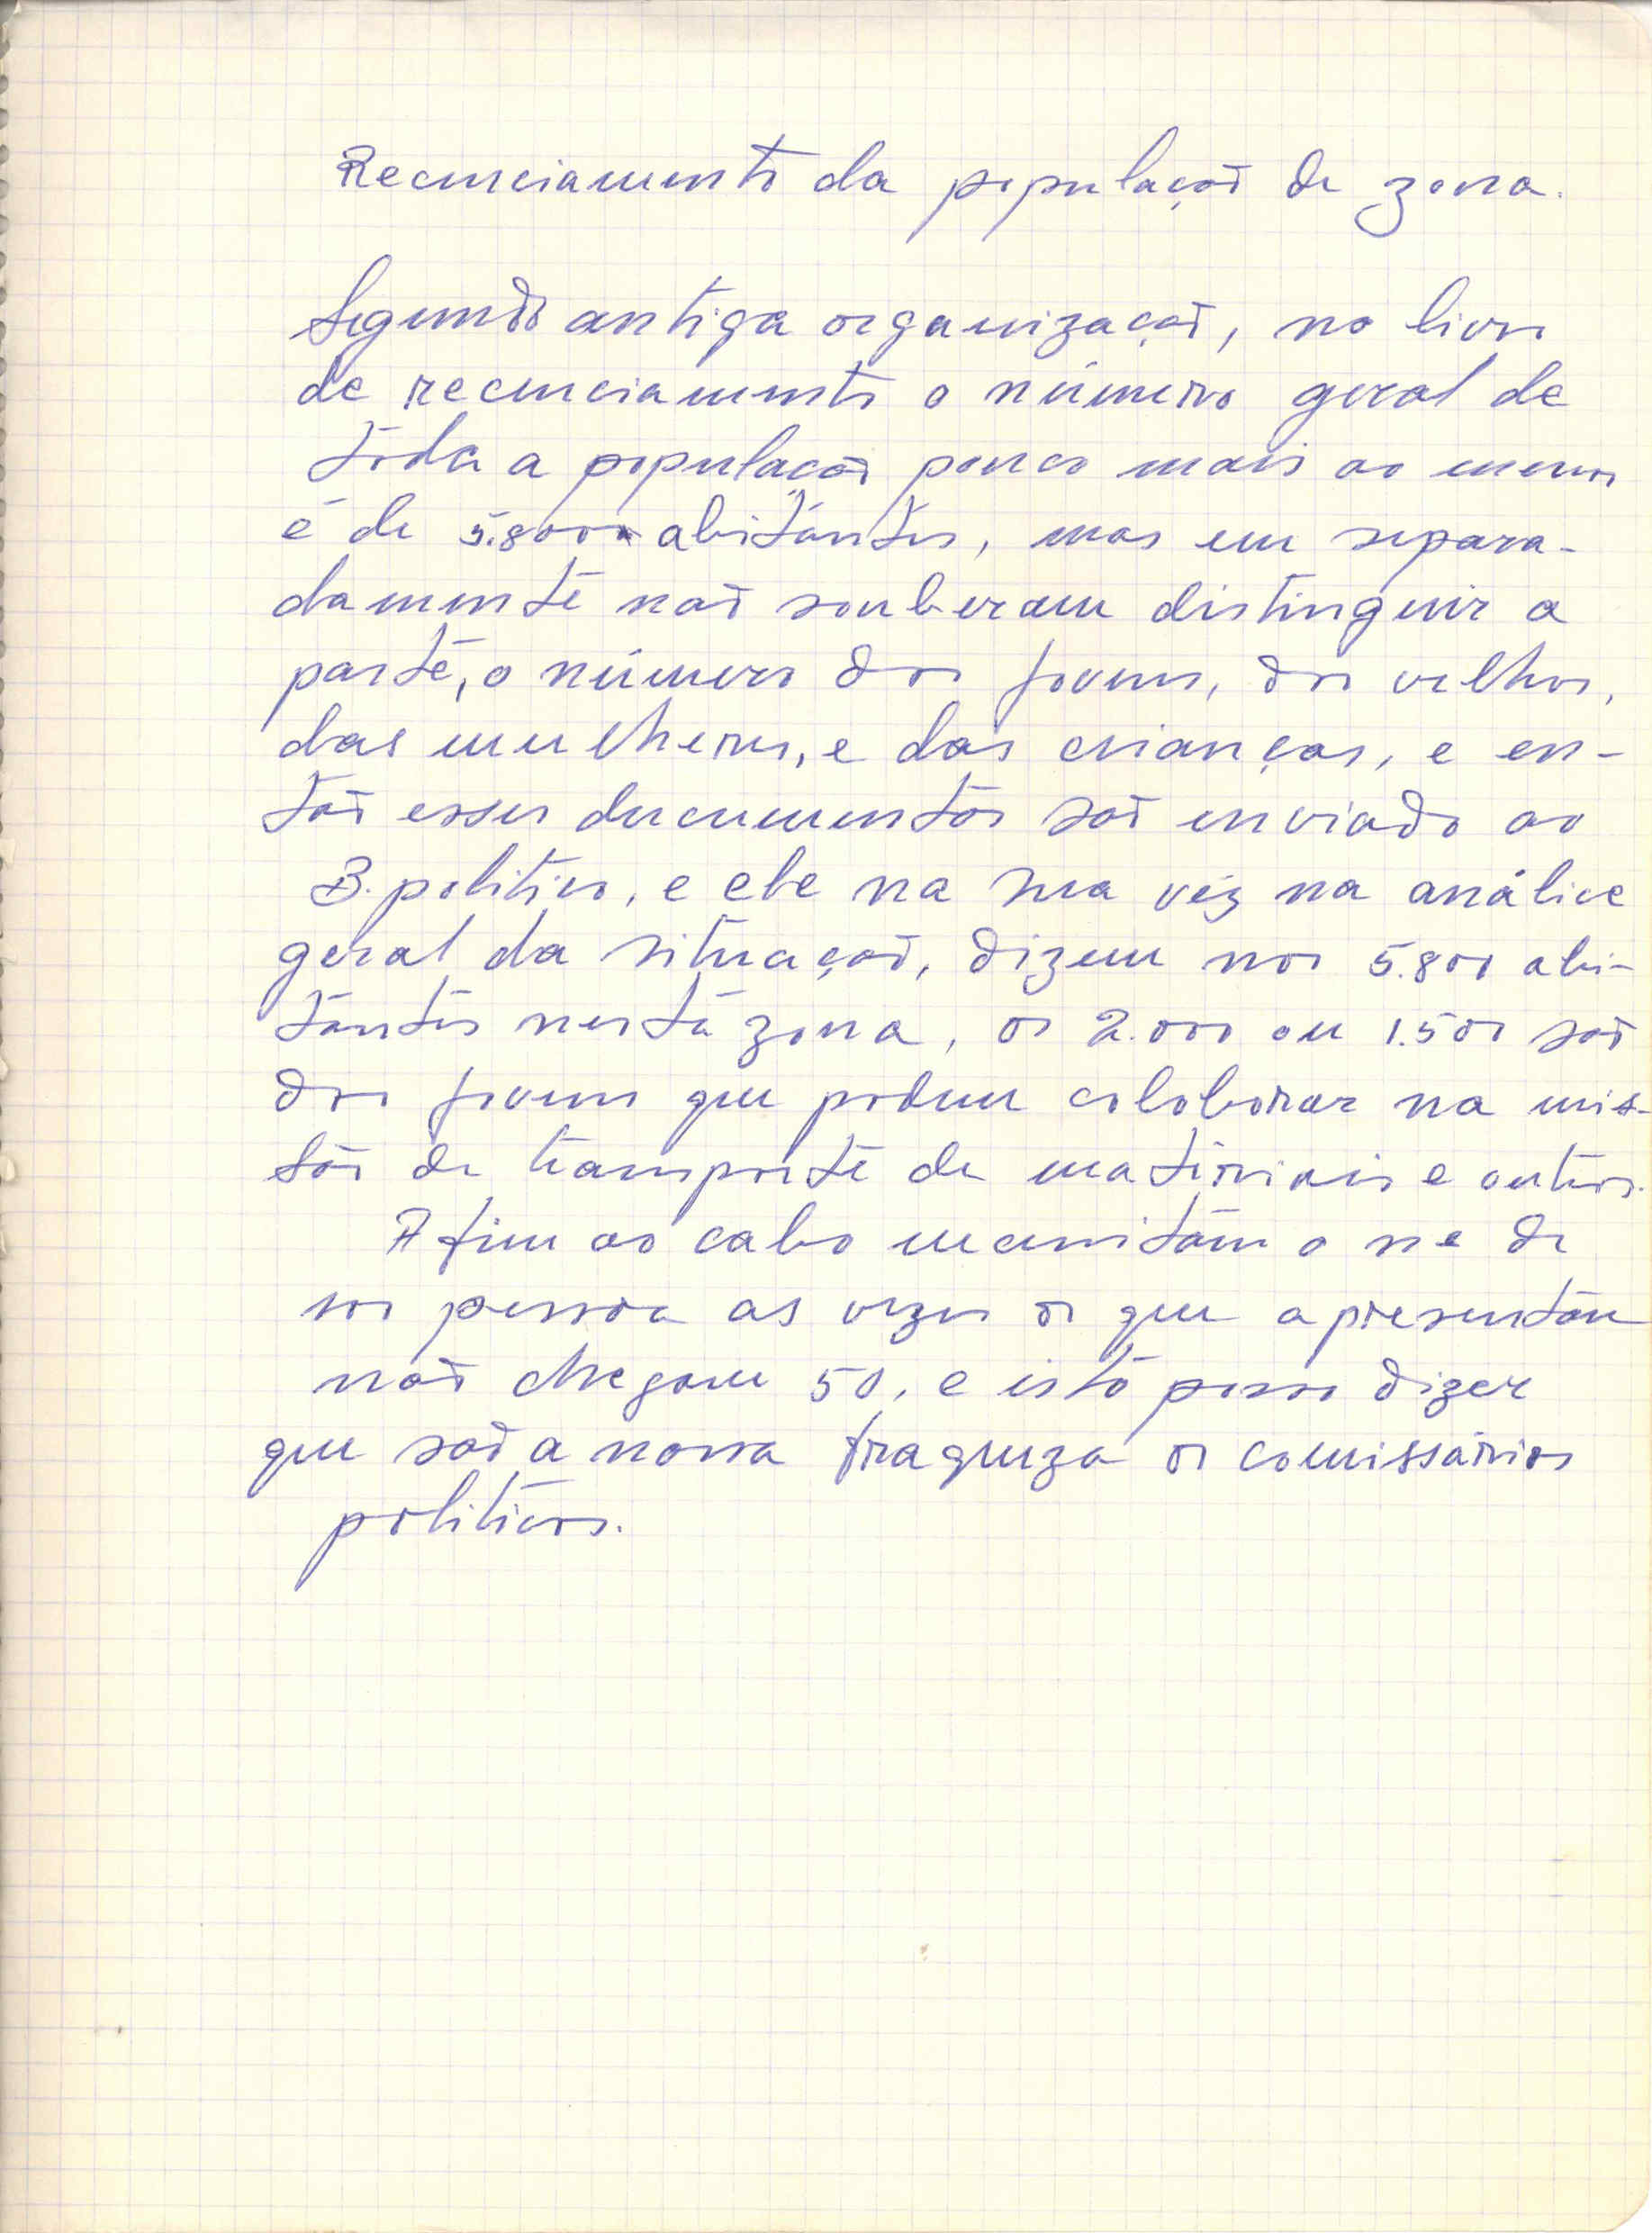 Recenciamento da populaçaõ de zona.
Segundo antiga organizaçaõ, no livro
de recenciamento o número geral de
toda a populaçaõ pouco mais ao menos
é de 5.800 abitántes, mas em separa-
damente naõ souberam distinguir a
parte, o número dos jovens, dos velhos,
das mulheres, e das crianças, e en-
taõ esses documentos saõ enviado ao
B. politico, e ele na sua véz na análice
geral da situaçaõ, dizem nos 5.800 abi-
tantes nesta zona, os 2.000 ou 1.500 saõ
dos jovens que podem coloborar na mis-
saõ de transporte de materiais e outros.
A fim ao cabo o de
pessoa as vezes os que apresentam
naõ chegam 50, e isto posso dizer
que saõ a nossa fraqueza os comissários
politicos.